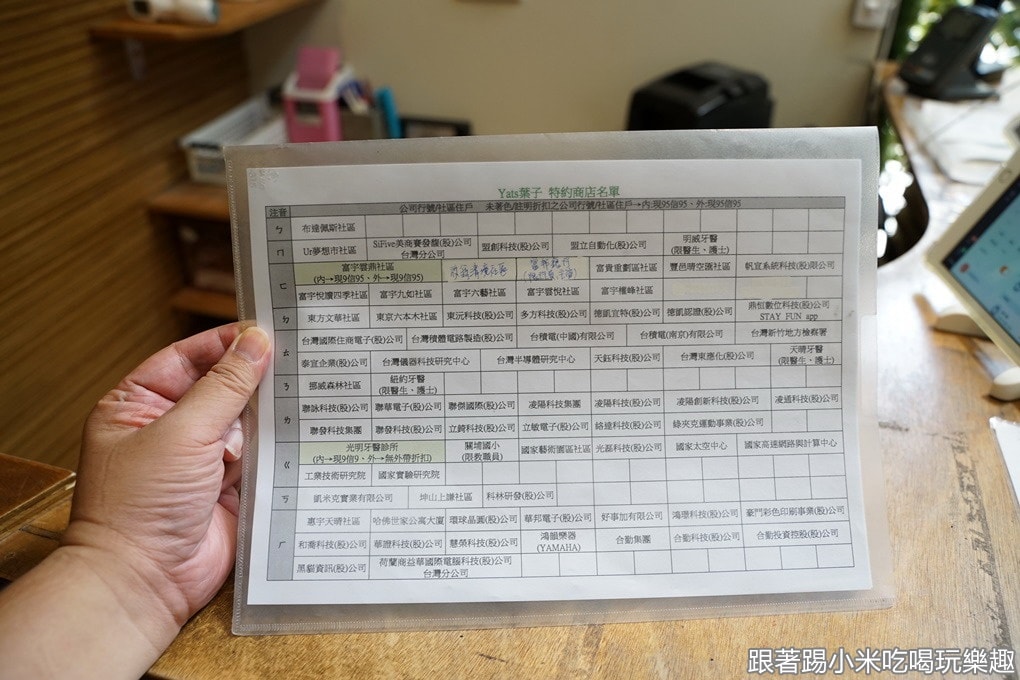 Yats葉子 特約商店名單
注音 公司行號/社區住戶 未著色/註明折扣之公司行號/社區住戶→內:現95信95、外:現95信95
ㄅ 布達佩斯社區
ㄇ Ur夢想市社區 SiFive英商賽發馥(股)公司台灣分公司 盟創科技(股)公司 盟立自動化(股)公司 明威牙醫(限醫生、護士)
ㄈ 富宇雲鼎社區(內→現9信95、外→現9信95) 富貴重劃區社區 豐邑晴空匯社區 帆宣系統科技(股)限公司
富宇悅讀四季社區 富宇九如社區 富宇六藝社區 富宇雲悅社區 富宇權峰社區
ㄉ 東方文華社區 東京六本木社區 東沅科技(股)公司 多方科技(股)公司 德凱宜特(股)公司 德凱認證(股)公司 鼎恒數位科技(股)公司 STAY FUN app
ㄊ 台灣國際住商電子(股)公司 台灣積體電路製造(股)公司 台積電(中國)有限公司 台積電(南京)有限公司 台灣新竹地方檢察署
泰宜企業(股)公司 台灣儀器科技研究中心 台灣半導體研究中心 天鈺科技(股)公司 台灣東應化(股)公司 天晴牙醫(限醫生、護士)
ㄋ 挪威森林社區 紐約牙醫(限醫生、護士)
ㄌ 聯詠科技(股)公司 聯華電子(股)公司 聯傑國際(股)公司 凌陽科技集團 凌陽科技(股)公司 凌陽創新科技(股)公司 凌通科技(股)公司
聯發科技集團 聯發科技(股)公司 立錡科技(股)公司 立敏電子(股)公司 絡達科技(股)公司 綠夾克運動事業(股)公司
ㄍ 光明牙醫診所(內→現9信9、外→無外帶折扣) 關埔國小(限教職員) 國家藝術園區社區 光磊科技(股)公司 國家太空中心 國家高速網路與計算中心
工業技術研究院 國家實驗研究院
ㄎ 凱米克實業有限公司 坤山上謙社區 科林研發(股)公司
ㄏ 惠宇天晴社區 哈佛世家公寓大廈 環球晶圓(股)公司 華邦電子(股)公司 好事加有限公司 鴻璟科技(股)公司 豪門彩色印刷事業(股)公司
和喬科技(股)公司 華證科技(股)公司 慧榮科技(股)公司 鴻韻樂器(YAMAHA) 合勤集團 合勤科技(股)公司 合勤投資控股(股)公司
黑貓資訊(股)公司 荷蘭商益華國際電腦科技(股)公司台灣分公司
跟著踢小米吃喝玩樂趣